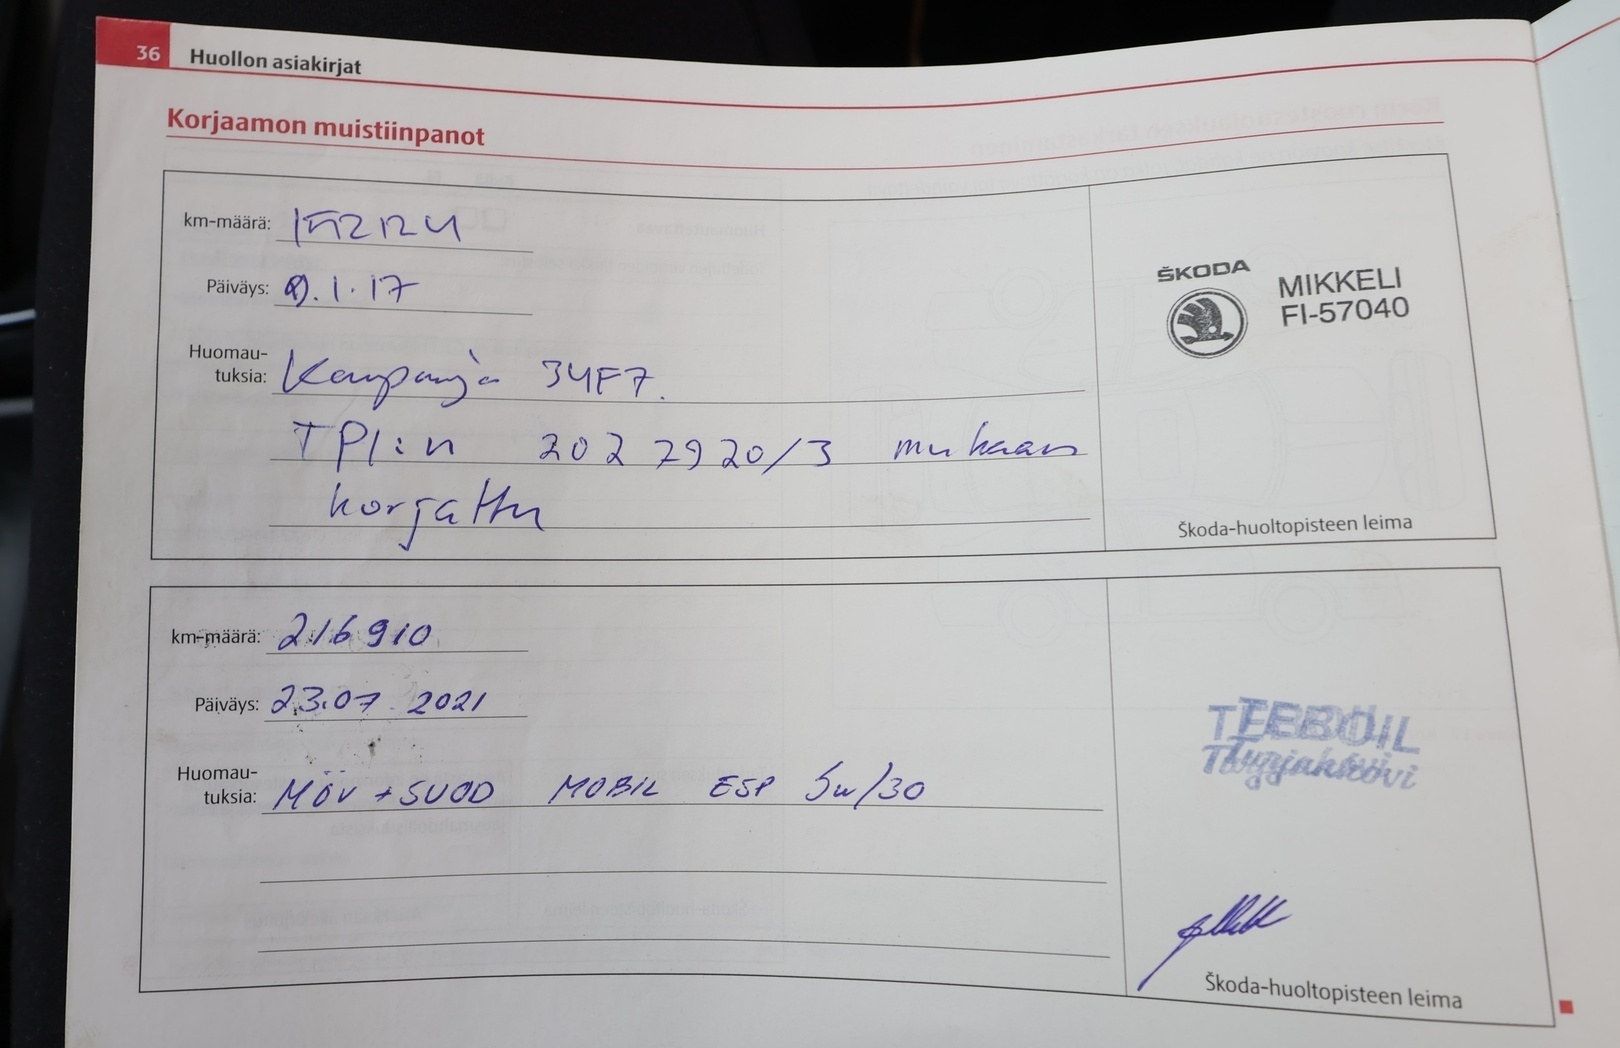 36 Huollon asiakirjat
Korjaamon muistiinpanot
km-määrä:
Päiväys: 9.1.17
Huomau-
tuksia: Kampanja 34F7.
TPI:n 2027920/3 mukaan
korjattu
ŠKODA
MIKKELI
FI-57040
Škoda-huoltopisteen leima
km-määrä: 216910
Päiväys: 23.07.2021
Huomau-
tuksia: MÖV + SUOD MOBIL ESP 5w/30
TEEBOIL
Škoda-huoltopisteen leima